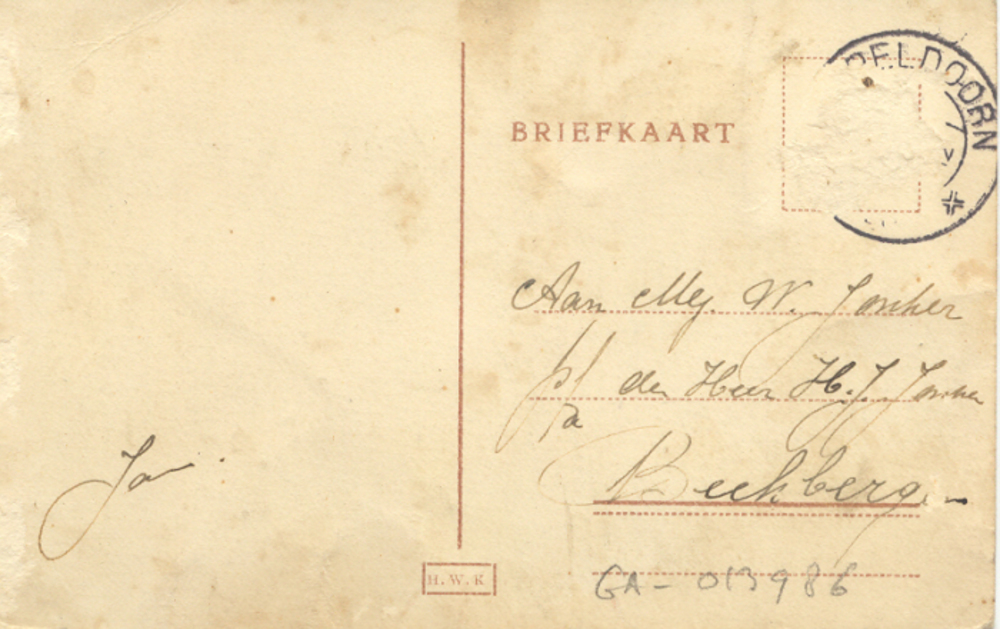 BRIEFKAART
PELDOORN
Aan Mej. W. Jonker
p/a den Heer H. J. Jonker
Beekberg.
Jan
H. W. K
GA - 013986